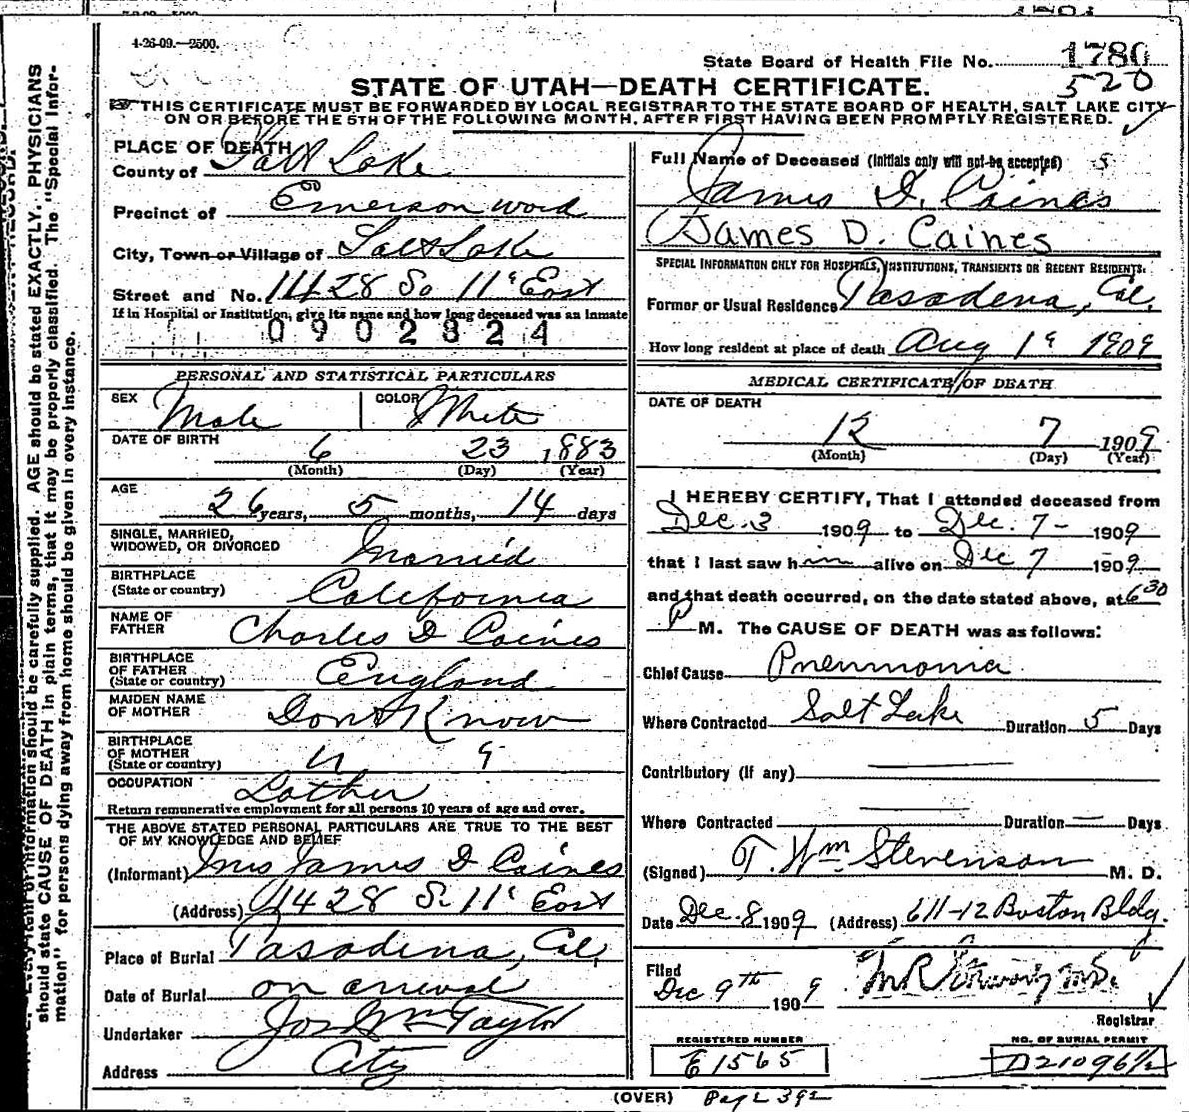 4-26-09.—2500.
State Board of Health File No. 1780
520
STATE OF UTAH—DEATH CERTIFICATE.
THIS CERTIFICATE MUST BE FORWARDED BY LOCAL REGISTRAR TO THE STATE BOARD OF HEALTH, SALT LAKE CITY
ON OR BEFORE THE 5TH OF THE FOLLOWING MONTH, AFTER FIRST HAVING BEEN PROMPTLY REGISTERED.
PLACE OF DEATH
County of Salt Lake
Precinct of Emerson Ward
City, Town or Village of Salt Lake
Street and No. 1428 So 11" East
If in Hospital or Institution, give its name and how long deceased was an inmate
0902824
PERSONAL AND STATISTICAL PARTICULARS
SEX Male COLOR White
DATE OF BIRTH 6 23 1883
(Month) (Day) (Year)
AGE 26 years, 5 months, 14 days
SINGLE, MARRIED,
WIDOWED, OR DIVORCED Married
BIRTHPLACE
(State or country) California
NAME OF
FATHER Charles D Caines
BIRTHPLACE
OF FATHER
(State or country) England
MAIDEN NAME
OF MOTHER Don't Know
BIRTHPLACE
OF MOTHER
(State or country) " "
OCCUPATION Lather
Return remunerative employment for all persons 10 years of age and over.
THE ABOVE STATED PERSONAL PARTICULARS ARE TRUE TO THE BEST
OF MY KNOWLEDGE AND BELIEF
(Informant) Mrs James D Caines
(Address) 1428 S. 11" East
Place of Burial Pasadena, Cal,
Date of Burial on arrival
Undertaker Jos Wm Taylor
Address City
Full Name of Deceased (Initials only will not be accepted) s
James D. Caines
James D. Caines
SPECIAL INFORMATION ONLY FOR HOSPITALS, INSTITUTIONS, TRANSIENTS OR RECENT RESIDENTS.
Former or Usual Residence Pasadena, Cal.
How long resident at place of death Aug 1" 1909
MEDICAL CERTIFICATE OF DEATH
DATE OF DEATH
12 7 1909
(Month) (Day) (Year)
I HEREBY CERTIFY, That I attended deceased from
Dec. 3 1909 to Dec. 7- 1909
that I last saw him alive on Dec 7 1909
and that death occurred, on the date stated above, at 6 30
P M. The CAUSE OF DEATH was as follows:
Chief Cause Pneumonia
Where Contracted Salt Lake Duration 5 Days
Contributory (if any)
Where Contracted Duration — Days
(Signed) T. Wm Stevenson M. D.
Date Dec. 8 1909 (Address) 611-12 Boston Bldg.
Filed
Dec 9th 1909
Registrar
REGISTERED NUMBER
E1565
NO. OF BURIAL PERMIT
D21096½
(OVER)
should state CAUSE OF DEATH in plain terms, that it may be properly classified. The "Special Infor-
mation" for persons dying away from home should be given in every instance.